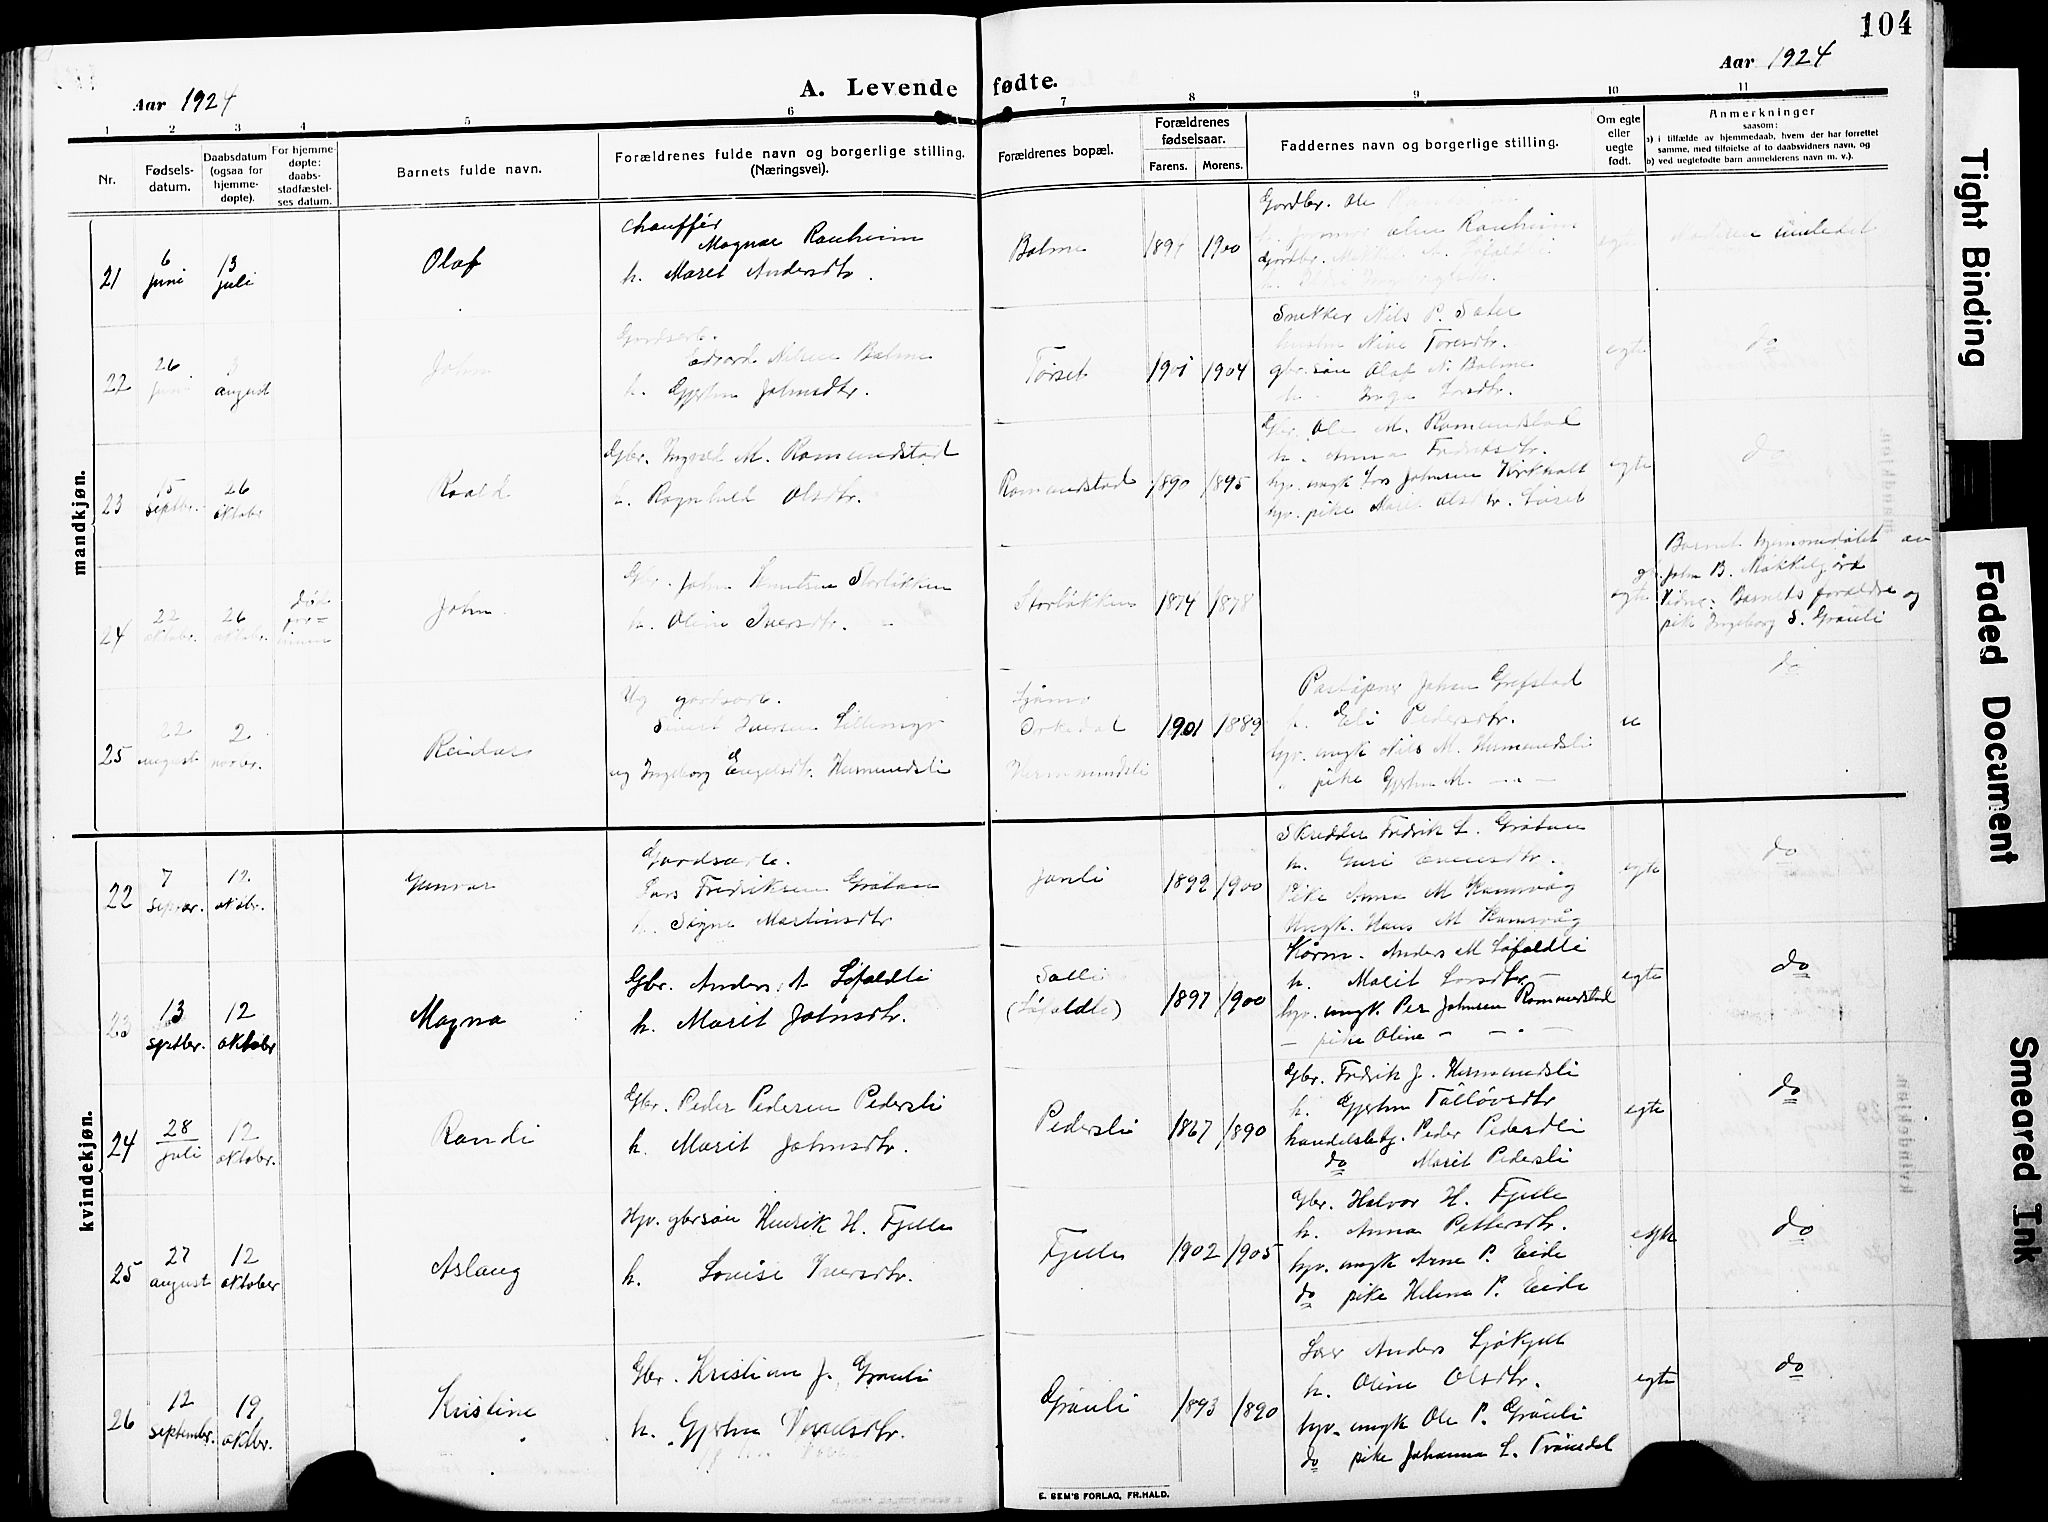 104
Aar 1924
A. Levende fødte.
Aar 1924
1 2 3 4 5 6 7 8 9 10 11
Nr.
Fødsels-
datum.
Daabsdatum
(ogsaa for
hjemme-
døpte).
For hjemme-
døpte:
daabs-
stadfæstel-
ses datum.
Barnets fulde navn.
Forældrenes fulde navn og borgerlige stilling.
(Næringsvei).
Forældrenes bopæl.
Forældrenes
fødselsaar.
Farens. Morens.
Faddernes navn og borgerlige stilling.
Om egte
eller
uegte
født.
Anmerkninger
saasom:
a) i tilfælde av hjemmedaab, hvem der har forrettet
samme, med tilføielse af to daabsvidners navn, og
b) ved uegtefødte barn anmelderens navn m. v.).
mandkjøn.
21
6
juni
13
juli
Olaf
Chauffér
Magnar Ranheim
h. Marit Andersdtr.
Bolme
1894 1900
Gardbr. Ole
Ranheim
egte
22
26
juni
3
august
John
Gardsarb.
Edvard Nilsen Bolme
h. Gjertru Johnsdtr.
Tørset
1901 1904
Snekker Nils P. Sæter
hustru Nine Toresdtr.
gbr.søn Olaf N. Bolme
h. Inga Larsdtr.
egte
do
23
15
septbr.
26
oktober
Roald
Gbr. Ingvald M. Romundstad
h. Ragnhild Olsdtr.
Romundstad
1890 1895
Gbr. Ole M. Romundstad
h. Anna Fredriksdtr.
hjv. ungk Lars Johnsen
hjv. pike Marit Olsdtr.
egte
do
24
22
oktober.
26
oktobr.
Død
John
Gbr. John Knutsen Storløkken
h. Oline Iversdtr.
Storløkken
1874 1878
egte
Barnet hjemmedøbt av
gbr. John B. Møkkelgård
Vidne: Barnets forældre og
pike Ingeborg S. Grønli
25
22
august
2
novbr.
Reidar
Ug gardsarb.
Sivert Iversen Lillemyr
og Ingeborg Engelsdtr. Hermundsli
Orkedal
Hermundsli
1901 1889
Poståpner Johan Grefstad
h. Eli Pedersdtr.
hjv. ungk Nils M. Hermundsli
" pike Gjertru M. — " —
u
do
kvindekjøn.
22
7
septbr.
12
oktbr.
Gunvor
Gardsarb.
Lars Fredriksen Gråtun
h. Signe Martinsdtr
Jonli
1892 1900
Skredder Fredrik L. Gråtun
h. Guri Evensdtr.
Pike Anna M Kamsvåg
Ungk. Hans M Kamsvåg
egte
do
23
13
septbr.
12
oktober
Magna
Gbr. Anders A Løfaldli
h. Marit Johnsdtr.
(Løfaldli)
1897 1900
Kårm. Anders M Løfaldli
h. Marit Larsdtr. —
hjv. ungk. Per Johnsen Romundstad
— pike Oline — — " —
egte
do
24
28
juli
12
oktober.
Randi
Gbr. Peder Pedersen Pedersli
h. Marit Johnsdtr.
Pedersli
1867 1890
Gbr. Fredrik J. Hermundsli
h. Gjertru Tølløvsdtr
handelsbetj. Peder Pedersli
do Marit Pedersli
egte
do
25
27
august
12
oktober
Aslaug
Hjv. gbrsøn Henrik H. Fjelle
h. Lovise Iversdtr.
Fjelle
1902 1905
Gbr. Halvor H. Fjelle
h. Anna Pettersdtr.
hjv. ungk Arne P. Eide
do pike Helena P. Eide
egte
do
26
12
septembr.
19
oktbr.
Kristine
Gbr. Kristian J. Grønli
h. Gjertru
Grønli
1893 1890
Anders
h. Oline Olsdtr.
hjv. ungk Ole P. Grønli
do pike Johanna L. Trønsdal
egte
do
E. SEM'S FORLAG, FR.HALD.
Tight Binding
Faded Document
Smeared Ink